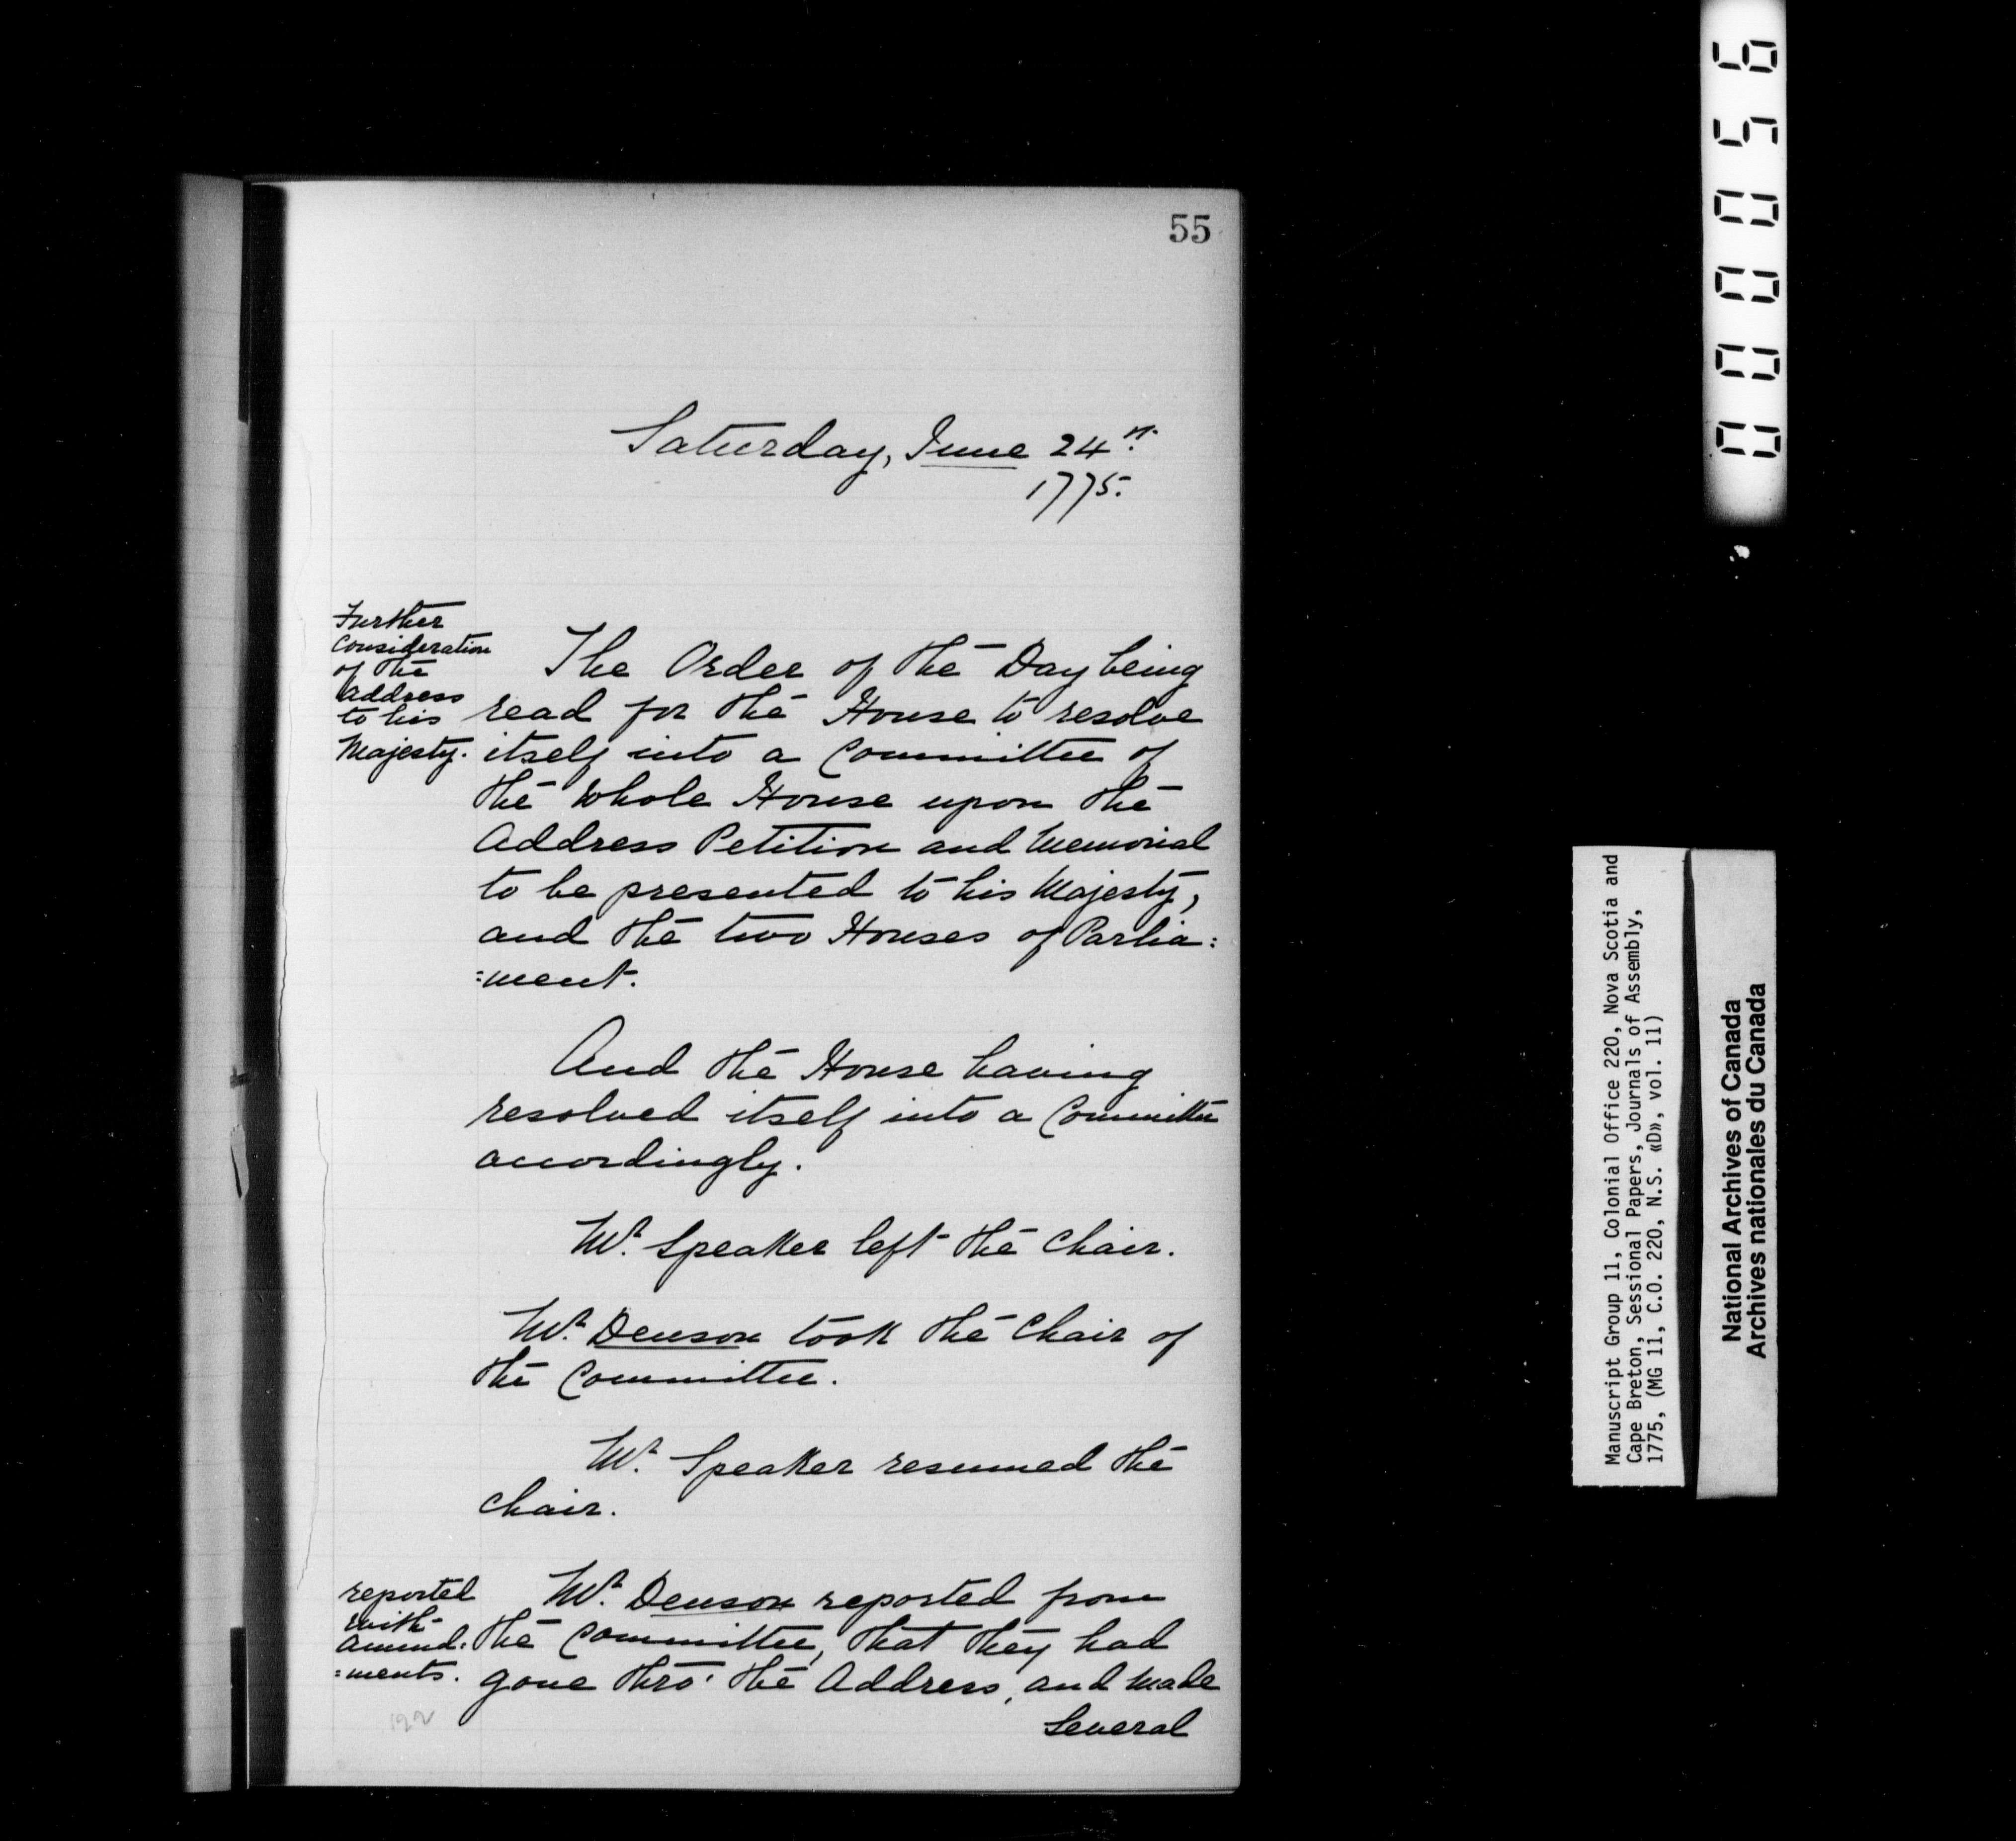 55
Saturday, June 24th
1775.
Further
Consideration
of the
address
to his
Majesty.
The Order of the Day being
read for the House to resolve
itself into a Committee of
the whole House upon the
Address Petition and Memorial
to be presented to his Majesty,
and the two Houses of Parlia:
:ment.
And the House having
resolved itself into a Committee
accordingly.
Mr. Speaker left the Chair.
Mr. Denson took the Chair of
the Committee.
Mr. Speaker resumed the
Chair.
reported
with
amend:
:ments.
Mr. Denson reported from
the Committee, that they had
gone thro' the Address, and made
Several
122
000056
Manuscript Group 11, Colonial Office 220, Nova Scotia and
Cape Breton, Sessional Papers, Journals of Assembly,
1775, (MG 11, C.O. 220, N.S. «D», vol. 11)
National Archives of Canada
Archives nationales du Canada